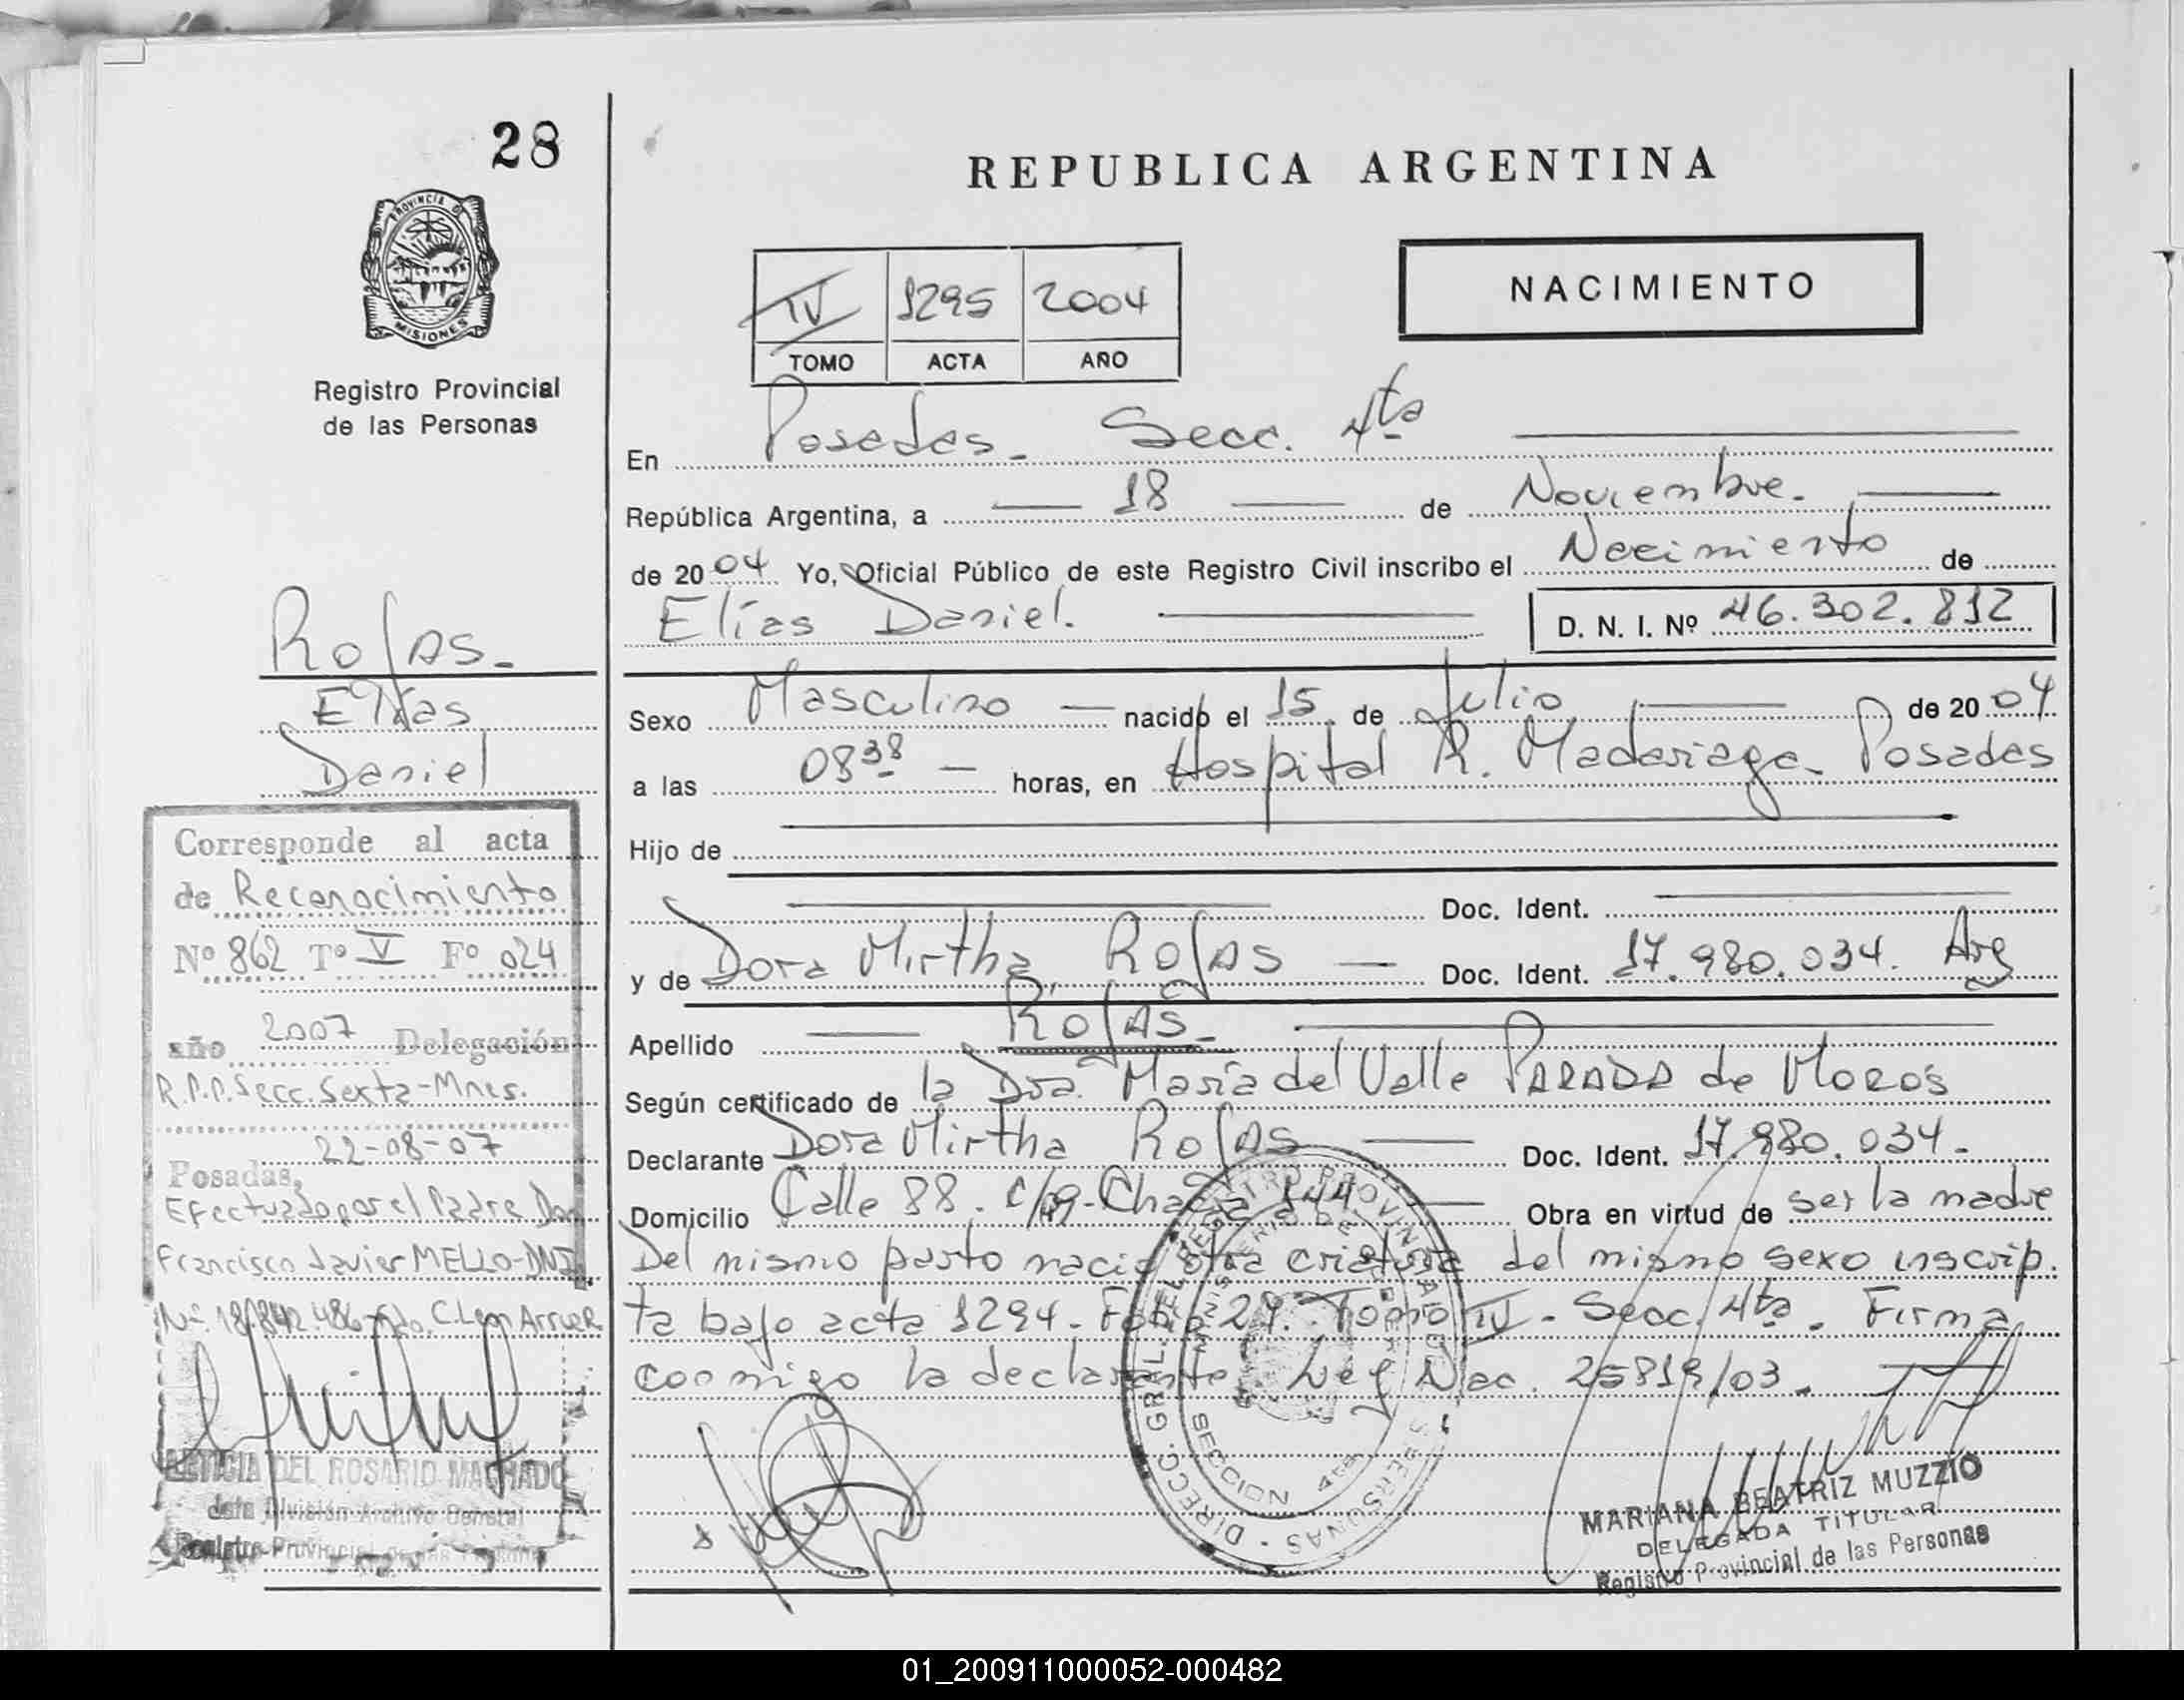 28
PROVINCIA DE
MISIONES
Registro Provincial
de las Personas
REPUBLICA ARGENTINA
NACIMIENTO
IV 1295 2004
TOMO ACTA AÑO
En Posadas - Secc. 4ta
República Argentina, a 18 de Noviembre.
de 2004 Yo, Oficial Público de este Registro Civil inscribo el Nacimiento de
Elías Daniel. D. N. I. Nº 46.302.812
Sexo Masculino nacido el 15 de Julio de 2004
a las 08 38 horas, en Hospital R. Madariaga - Posadas
Hijo de
Doc. Ident.
y de Dora Mirtha ROJAS Doc. Ident. 17.980.034. Arg
Apellido ROJAS -
Según certificado de la Dra. María del Valle PARADA de
Declarante Dora Mirtha ROJAS Doc. Ident. 17.980.034 -
Domicilio Calle 88. Chacra 144 Obra en virtud de ser la madre
Del mismo parto nació otra criatura del mismo sexo inscrip.
ta bajo acta 1294 - Folio 27. Tomo IV - Secc. 4ta. Firma
conmigo la declarante. Ley Nac. 25819/03.
DIRECC. GRAL. DEL REGISTRO PROVINCIAL DE LAS PERSONAS
MINISTERIO DE
SECCION 4ta
MARIANA BEATRIZ MUZZIO
DELEGADA TITULAR
Registro Provincial de las Personas
ROJAS -
Elías
Daniel
Corresponde al acta
de Reconocimiento
Nº 862 Tº V Fº 024
año 2007 Delegación
R.P.P. Secc. Sexta - Mnes.
22-08-07
Posadas,
Efectuado por el Padre Don
Francisco Javier MELLO - DNI
Nº 18.842.486 - Fdo. C.
LETICIA DEL ROSARIO MACHADO
División Archivo General
Registro Provincial de las Personas
01_200911000052-000482